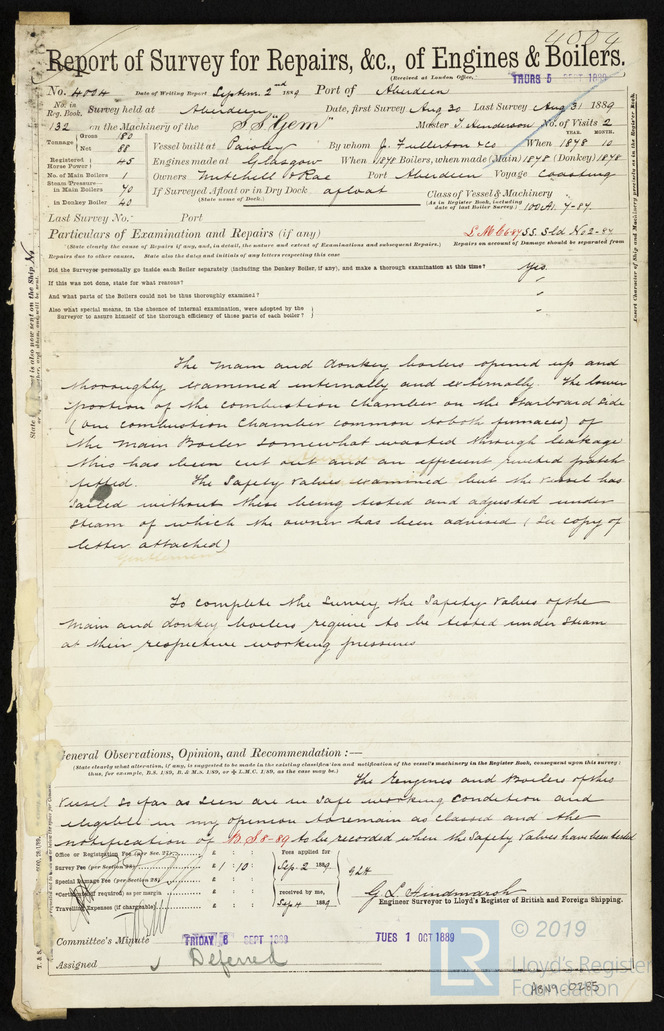 4004
Report of Survey for Repairs, &c., of Engines & Boilers.
(Received at London Office, THURS 5 SEPT 1889
No. 4024 Date of Writing Report Septem. 2nd 1889 Port of Aberdeen
No. in Reg. Book. Survey held at Aberdeen Date, first Survey Aug 30 Last Survey Aug 31 1889
132 on the Machinery of the S.S. "Gem" Master T. Henderson No. of Visits 2
Tonnage Gross Net 88 Vessel built at Paisley By whom J. Fullerton & Co When 1878 YEAR. MONTH. 10
Registered Horse Power 45 Engines made at Glasgow When 1878 Boilers, when made (Main) 1878 (Donkey) 1878
No. of Main Boilers 1 Owners Mitchell & Rae Port Aberdeen Voyage Coasting
Steam Pressure— in Main Boilers 70 If Surveyed Afloat or in Dry Dock afloat Class of Vessel & Machinery
in Donkey Boiler 40 (State name of Dock.) (As in Register Book, including date of last Boiler Survey.) 100A1 7-87
Last Survey No. Port
Particulars of Examination and Repairs (if any)
(State clearly the cause of Repairs if any, and, in detail, the nature and extent of Examinations and subsequent Repairs.) Repairs on account of Damage should be separated from
Repairs due to other causes. State also the dates and initials of any letters respecting this case
Did the Surveyor personally go inside each Boiler separately (including the Donkey Boiler, if any), and make a thorough examination at this time? Yes.
If this was not done, state for what reasons? "
And what parts of the Boilers could not be thus thoroughly examined? "
Also what special means, in the absence of internal examination, were adopted by the
Surveyor to assure himself of the thorough efficiency of those parts of each boiler? "
The main and donkey boilers opened up and
thoroughly examined internally and externally. The lower
portion of the combustion chamber on the Starboard Side
(one combustion chamber common to both furnaces) of
the Main Boiler somewhat wasted through leakage
this has been cut out and an efficient riveted patch
fitted. The Safety Valves examined but the vessel has
sailed without these being tested and adjusted under
steam of which the owner has been advised (See copy of
letter attached)
Gentlemen
To complete the survey the Safety Valves of the
Main and donkey boilers require to be tested under steam
at their respective working pressures
General Observations, Opinion, and Recommendation :—
(State clearly what alteration, if any, is suggested to be made in the existing classification and notification of the vessel's machinery in the Register Book, consequent upon this survey:
thus, for example, B.S. 1/89, B. & M.S. 1/89, or ✠ L.M.C. 1/89, as the case may be.)
The Engines and Boilers of this
Vessel so far as seen are in safe working condition and
eligible in my opinion to remain as classed and the
notification of B.S 8-89 to be recorded when the Safety Valves have been tested
Office or Registration Fee £ : : Fees applied for
Survey Fee (per Section 28) £ 1 : 10 : Sep. 2 1889
Special Damage Fee (per Section 28) £ : : G L H
*Certificate (if required) as per margin £ : : received by me, G L Hindmarsh
Travelling Expenses (if chargeable) £ : : Sep 4 1889 Engineer Surveyor to Lloyd's Register of British and Foreign Shipping.
Committee's Minute FRIDAY 6 SEPT 1889 TUES 1 OCT 1889
Assigned Deferred
© 2019
LR
Lloyd's Register
Foundation
ABN9-0285
Insert Character of Ship and Machinery precisely as in the Register Book.